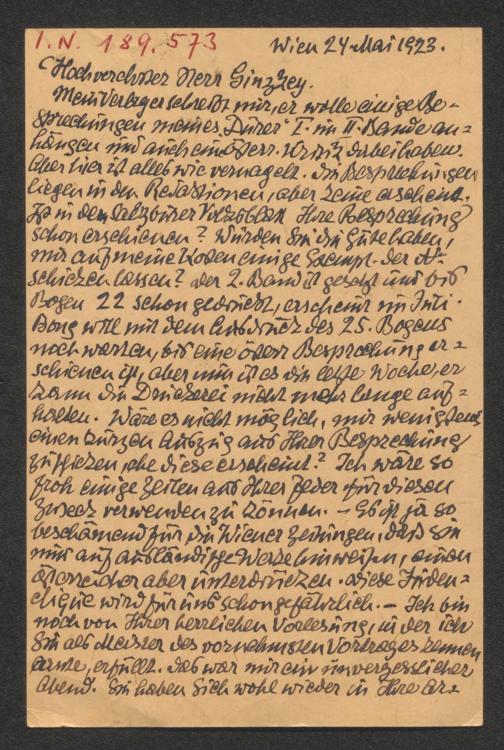 I.N. 189.573
Wien 24. Mai 1923.
Hochverehrter Herr Ginzkey.
Mein Verleger schreibt mir, er wolle einige Be-
sprechungen meines "Dürer" I. im II. Bande an-
hängen und auch eine österr. Kritik dabei haben.
Aber hier ist alles wie vernagelt. Die Besprechungen
liegen in den Redaktionen, aber keine erscheint.
Ist in dem Salzburger Volksblatt Ihre Besprechung
schon erschienen? Würden Sie die Güte haben,
mir auf meine Kosten einige Exempl. der
schicken lassen? Der 2. Band ist gesetzt und bis
Bogen 22 schon gedruckt, erscheint im Juli.
Bong will mit dem Ausdruck des 25. Bogens
noch warten, bis eine österr. Besprechung er-
schienen ist, aber nun ist es die letzte Woche, er
kann die Druckerei nicht mehr lange auf-
halten. Wäre es nicht möglich, mir wenigstens
einen kurzen Auszug aus Ihrer Besprechung
zu schicken, ehe diese erscheint? Ich wäre so
froh einige Zeilen aus Ihrer Feder für diesen
Zweck verwenden zu können. – Es ist ja so
beschämend für die Wiener Zeitungen, dass sie
nur auf ausländische Werke hinweisen, einen
Österreicher aber unterdrücken. Diese Juden-
clique wird für uns schon gefährlich. – Ich bin
noch von Ihrer herrlichen Vorlesung, in der ich
Sie als Meister des vornehmsten Vortrages kennen
lernte, erfüllt. Das war mir ein unvergesslicher
Abend. Sie haben sich wohl wieder in Ihre Ar-